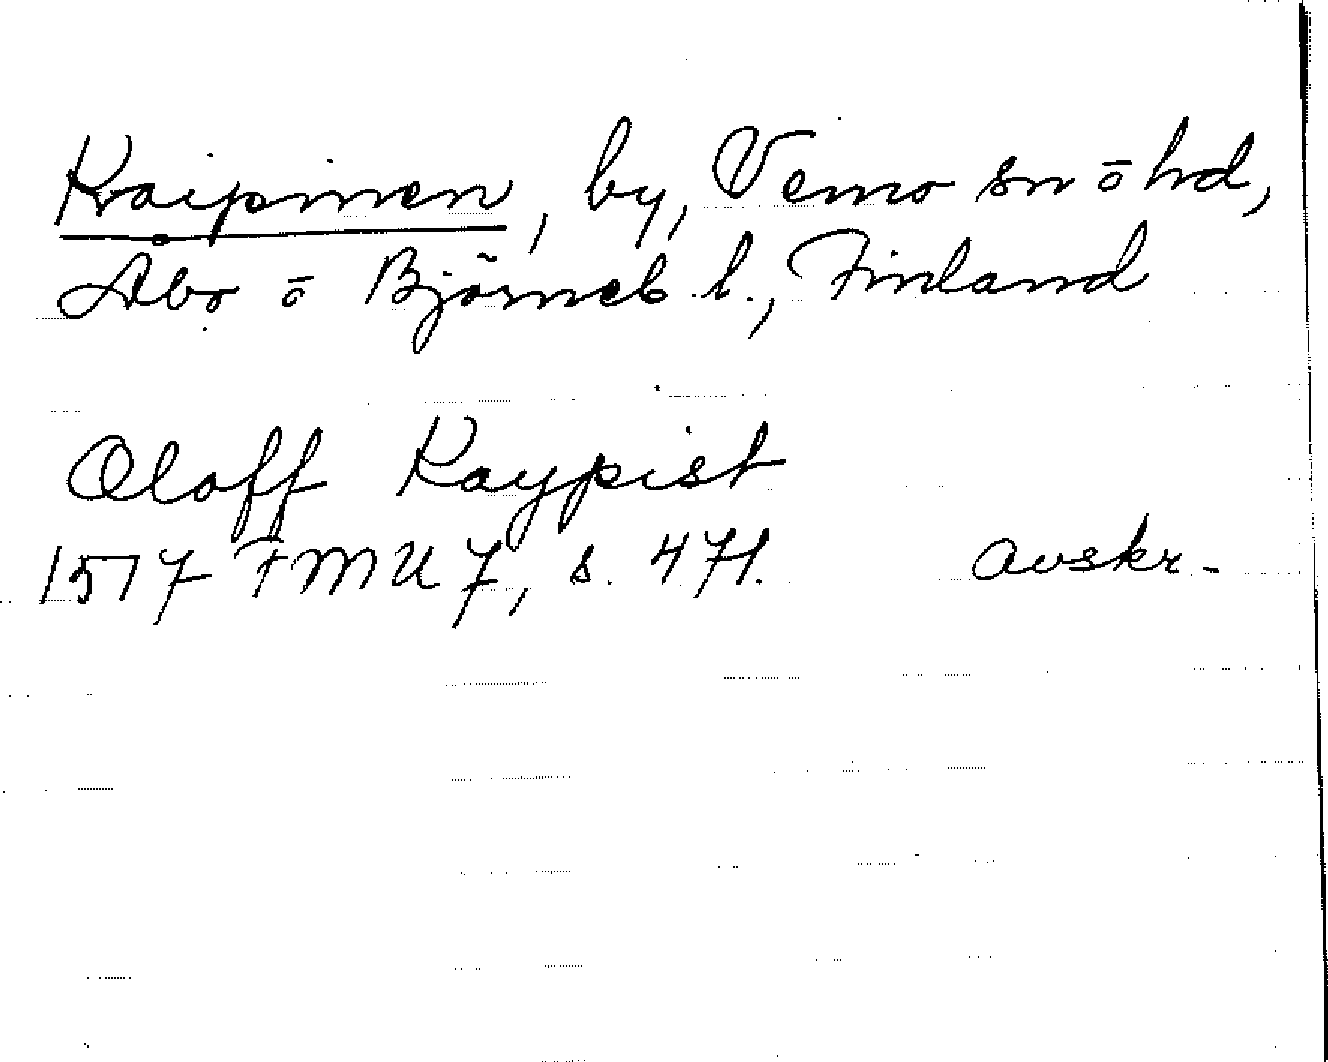 Kaipinen, by, Vemo sn ō hd,
Åbo ō Björneb. l., Finland
Oloff Kaypist
1517 FMU 7, s. 471. avskr.